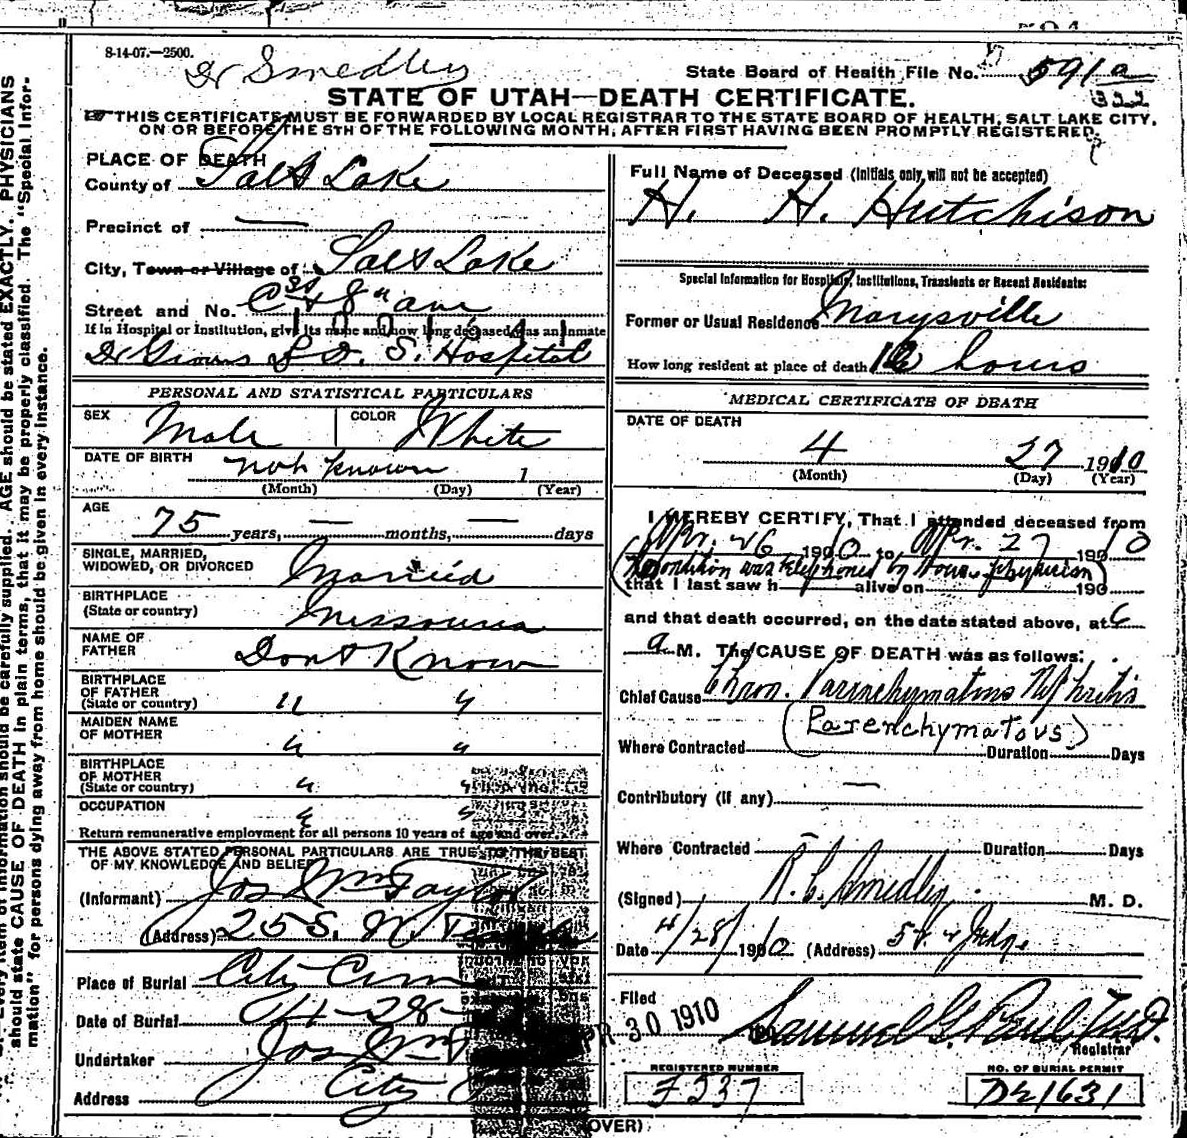 8-14-07.—2500.
Dr Smedley
State Board of Health File No. 591a
322
STATE OF UTAH—DEATH CERTIFICATE.
THIS CERTIFICATE MUST BE FORWARDED BY LOCAL REGISTRAR TO THE STATE BOARD OF HEALTH, SALT LAKE CITY,
ON OR BEFORE THE 5TH OF THE FOLLOWING MONTH, AFTER FIRST HAVING BEEN PROMPTLY REGISTERED.
PLACE OF DEATH
County of Salt Lake
Precinct of —
City, Town or Village of Salt Lake
Street and No. C St & 8" ave
If in Hospital or Institution, give its name and how long deceased was an inmate
Dr L. D. S. Hospital
PERSONAL AND STATISTICAL PARTICULARS
SEX Male COLOR White
DATE OF BIRTH not known 1
(Month) (Day) (Year)
AGE
75 years, — months, — days
SINGLE, MARRIED,
WIDOWED, OR DIVORCED Married
BIRTHPLACE
(State or country) Missouri
NAME OF
FATHER Dont Know
BIRTHPLACE
OF FATHER
(State or country) " "
MAIDEN NAME
OF MOTHER " "
BIRTHPLACE
OF MOTHER
(State or country) " "
OCCUPATION " "
Return remunerative employment for all persons 10 years of age and over.
THE ABOVE STATED PERSONAL PARTICULARS ARE TRUE TO THE BEST
OF MY KNOWLEDGE AND BELIEF
(Informant) Jos Wm Taylor
(Address) 25 S. W.
Place of Burial City Cem
Date of Burial 28
Undertaker Jos Wm
Address City
Full Name of Deceased (Initials only will not be accepted)
H. H. Hutchison
Special Information for Hospitals, Institutions, Transients or Recent Residents:
Former or Usual Residence Marysville
How long resident at place of death hours
MEDICAL CERTIFICATE OF DEATH
DATE OF DEATH
4 27 1910
(Month) (Day) (Year)
I HEREBY CERTIFY, That I attended deceased from
Apr. 26 1910 to Apr. 27 1910
(Condition was telephoned by House physician)
that I last saw h alive on 190
and that death occurred, on the date stated above, at 6
a M. The CAUSE OF DEATH was as follows:
Chief Cause Chron. Parenchymatous Nephritis
(Parenchymatous)
Where Contracted Duration Days
Contributory (if any) —
Where Contracted — Duration Days
(Signed) R. C. Smedley M. D.
Date 4/28/1910 (Address) Judge
Filed APR 30 1910 Samuel G. Paul
Registrar
REGISTERED NUMBER
NO. OF BURIAL PERMIT
D21631
(OVER)
should state CAUSE OF DEATH in plain terms, that it may be properly classified. The "Special Infor-
mation" for persons dying away from home should be given in every instance.
Every item of information should be carefully supplied. AGE should be stated EXACTLY. PHYSICIANS